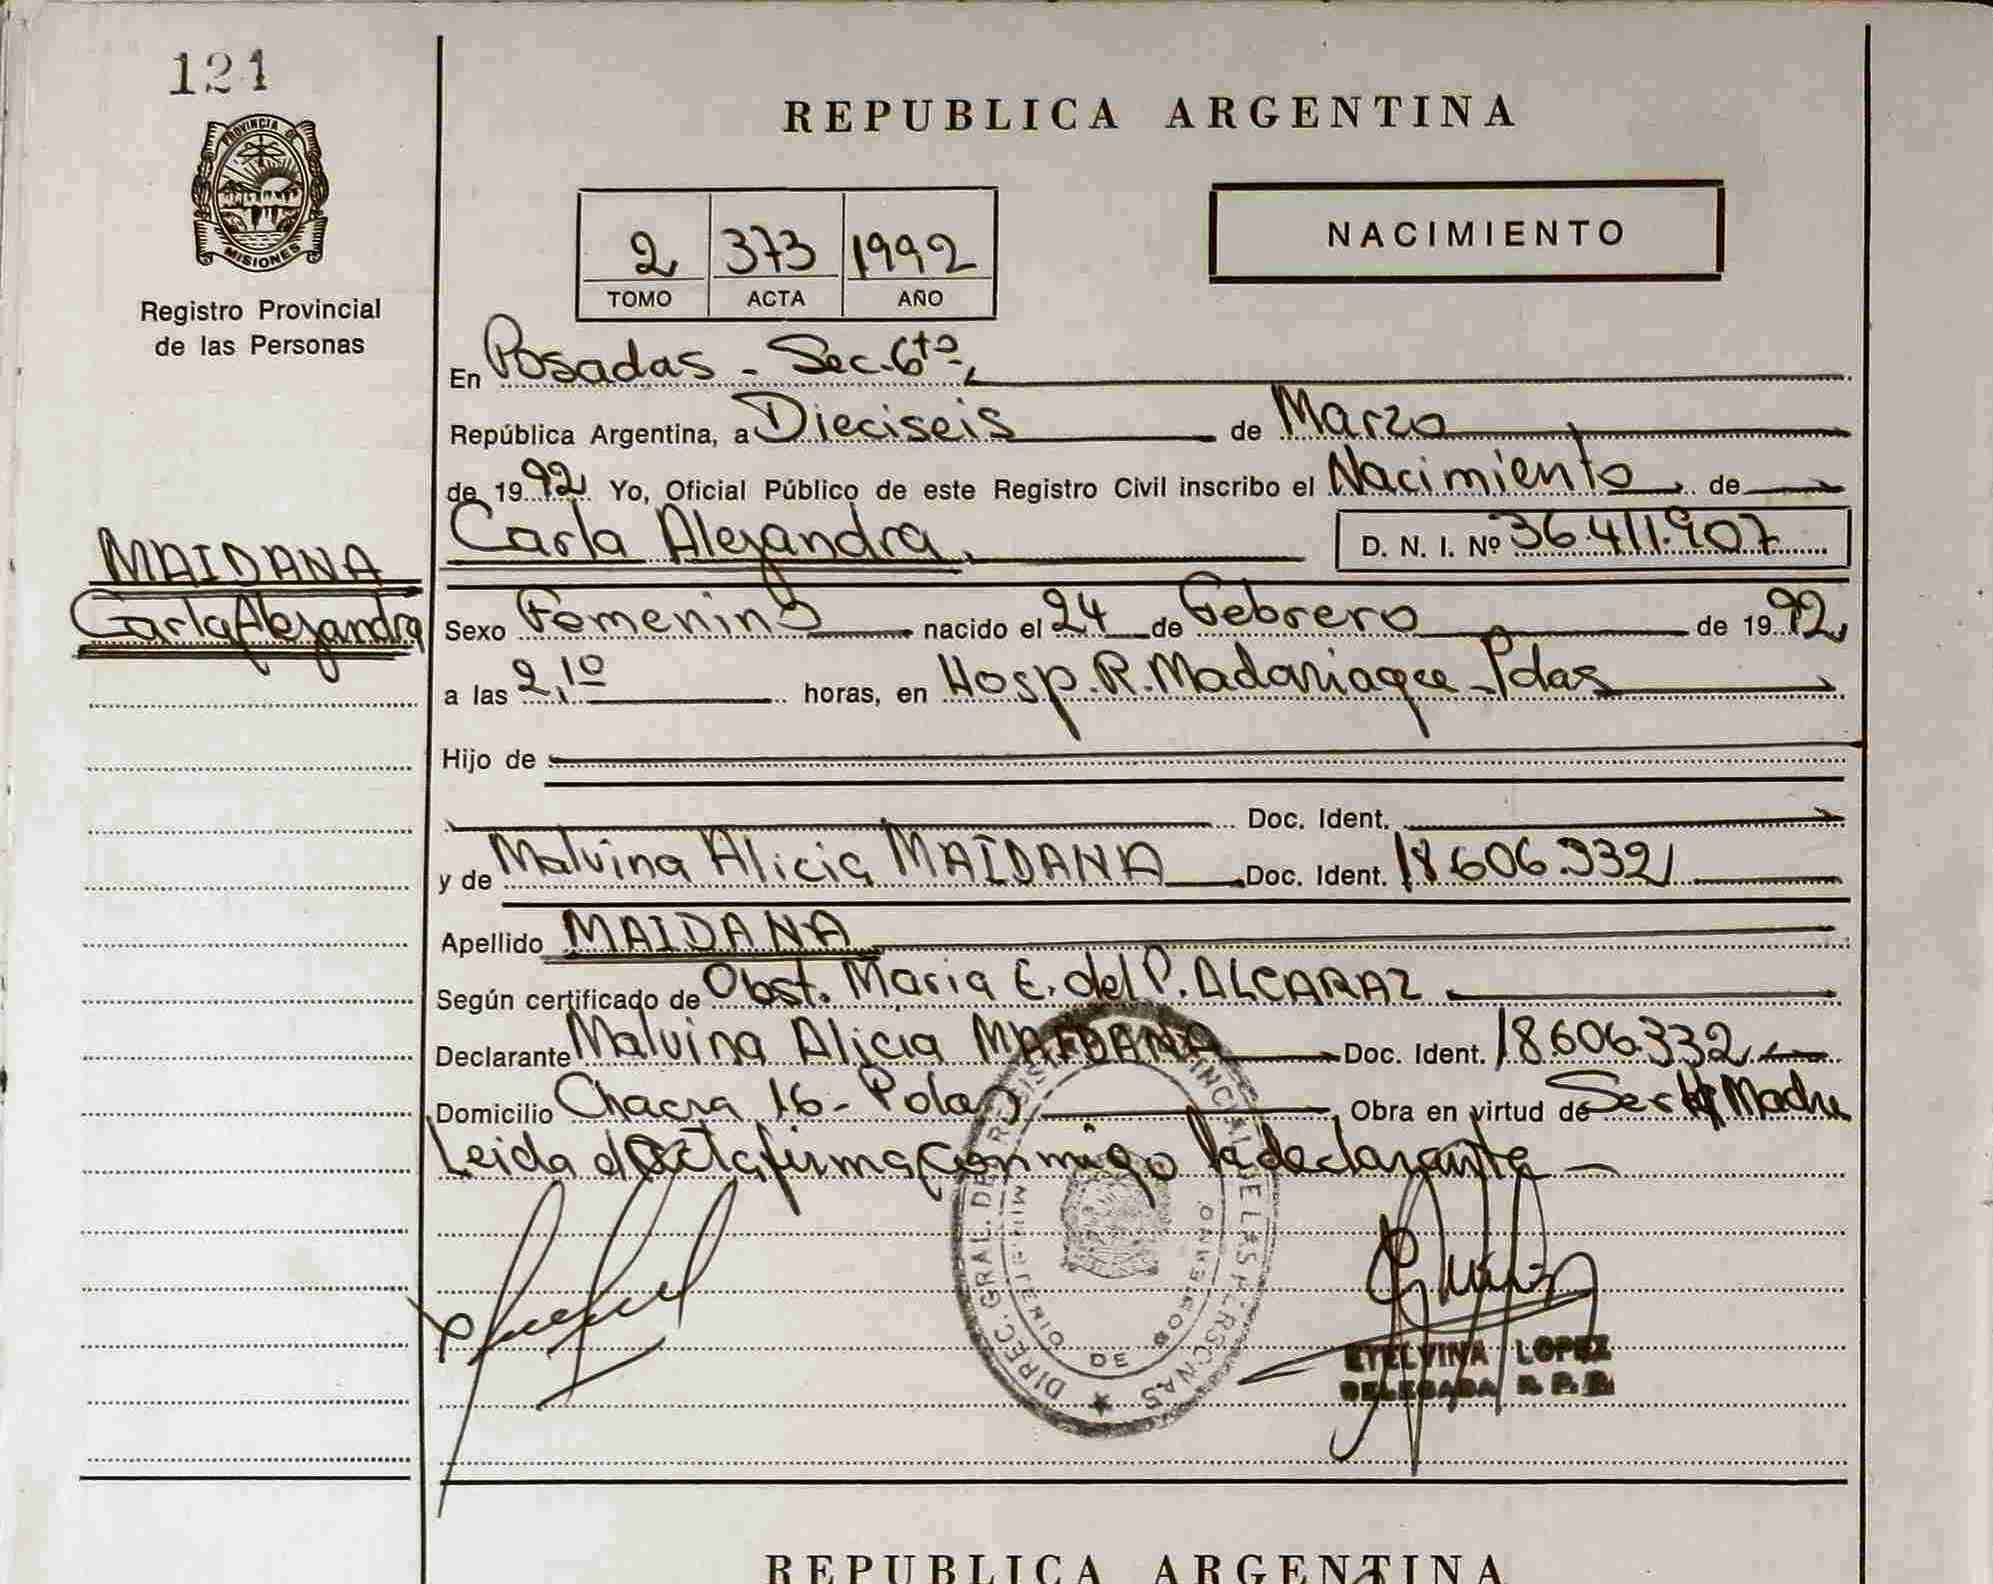 121
PROVINCIA DE
MISIONES
Registro Provincial
de las Personas
MAIDANA
Carla Alejandra
REPUBLICA ARGENTINA
2 373 1992
TOMO ACTA AÑO
NACIMIENTO
En Posadas - Sec. 6ta,
República Argentina, a Dieciseis de Marzo
de 1992 Yo, Oficial Público de este Registro Civil inscribo el Nacimiento de
Carla Alejandra, D. N. I. Nº 36.411.907
Sexo Femenino nacido el 24 de Febrero de 1992,
a las 2,10 horas, en Hosp. R. Madariaga - Pdas
Hijo de
Doc. Ident.
y de Malvina Alicia MAIDANA Doc. Ident. 18.606.332
Apellido MAIDANA
Según certificado de Obst. Maria E. del P. ALCARAZ
Declarante Malvina Alicia MAIDANA Doc. Ident. 18.606.332
Domicilio Chacra 16 - Obra en virtud de Madre
Leida el Acta firma conmigo la declarante
DIREC. GRAL. DEL REGISTRO PROVINCIAL DE LAS PERSONAS
MINISTERIO DE GOBIERNO
ETELVINA LOPEZ
DELEGADA R. P. P.
REPUBLICA ARGENTINA